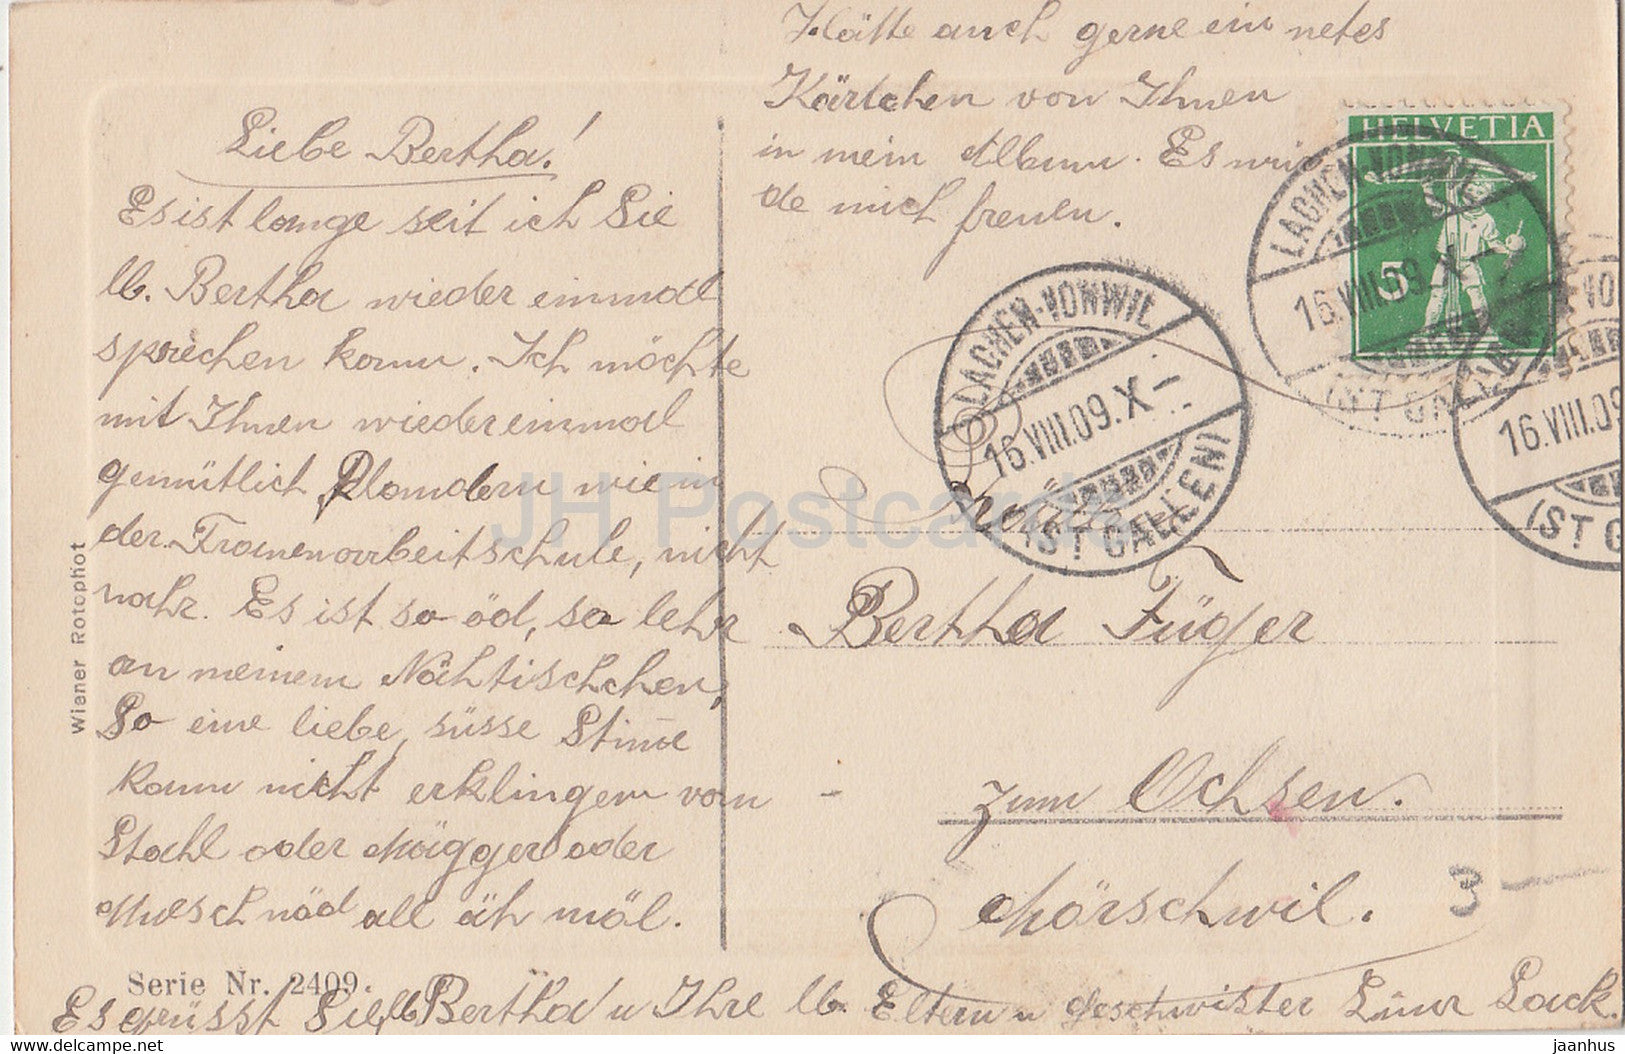 Liebe Bertha!
Es ist lange seit ich Sie
lb. Bertha wieder einmal
sprechen kann. Ich möchte
mit Ihnen wiedereinmal
gemütlich Plandern wie in
der Frauenarbeitschule, nicht
wahr. Es ist so öd, so lehr
an meinem Nähtischchen,
So eine liebe, süsse Stimme
kann nicht erklingen von
Stahl oder Mägger oder
Muesch näd all äh mäl.
Es grüsst Sie, lb Bertha u Ihre lb. Eltern u Geschwister Lina Lack.
Hätte auch gerne ein netes
Kärtchen von Ihnen
in mein Album. Es wür
de mich freuen.
HELVETIA
5
LACHEN-VONWIL
16.VIII.09.X-
(ST GALLEN)
LACHEN-VONWIL
16.VIII.09.X-
(ST GALLEN)
VON
16.VIII.09
(ST G
Bertha Füger
zum Ochsen.
Mörschwil.
3-
Wiener Rotophot
Serie Nr. 2409.
JH Postcards
delcampe.net
jaanhus